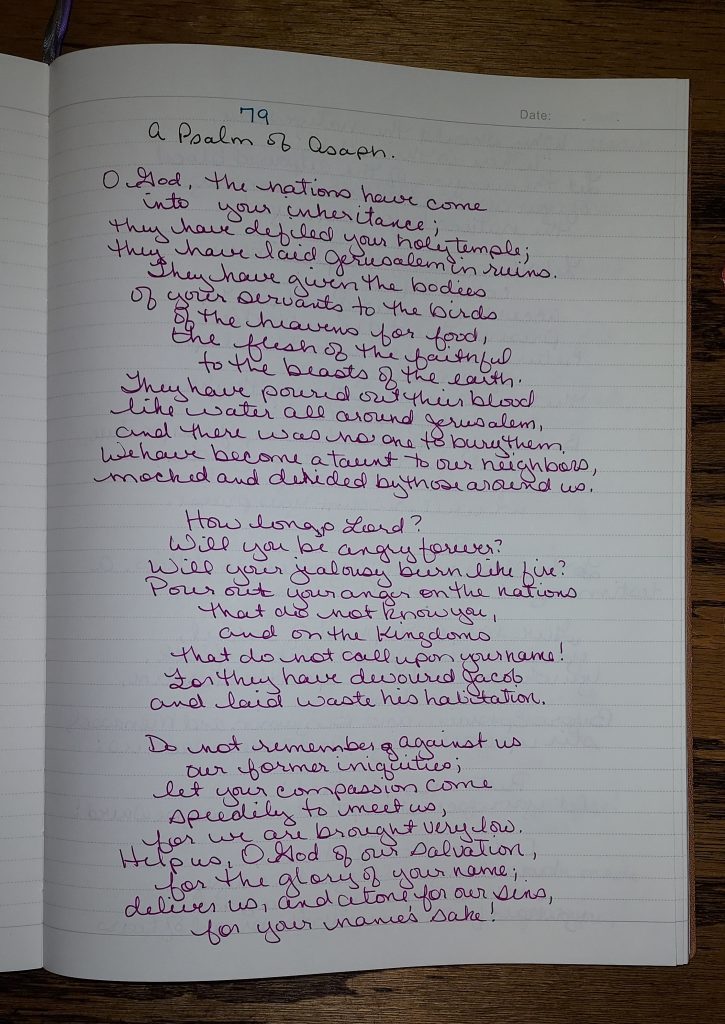 79
Date:
A Psalm of Asaph.
O God, the nations have come
into your inheritance;
they have defiled your holy temple;
they have laid Jerusalem in ruins.
They have given the bodies
of your servants to the birds
of the heavens for food,
the flesh of the faithful
to the beasts of the earth.
They have poured out their blood
like water all around Jerusalem,
and there was no one to bury them.
We have become a taunt to our neighbors,
mocked and derided by those around us.
How long, O Lord?
Will you be angry forever?
Will your jealousy burn like fire?
Pour out your anger on the nations
that do not know you,
and on the kingdoms
that do not call upon your name!
For they have devoured Jacob
and laid waste his habitation.
Do not remember against us
our former iniquities;
let your compassion come
speedily to meet us,
for we are brought very low.
Help us, O God of our salvation,
for the glory of your name;
deliver us, and atone for our sins,
for your name's sake!